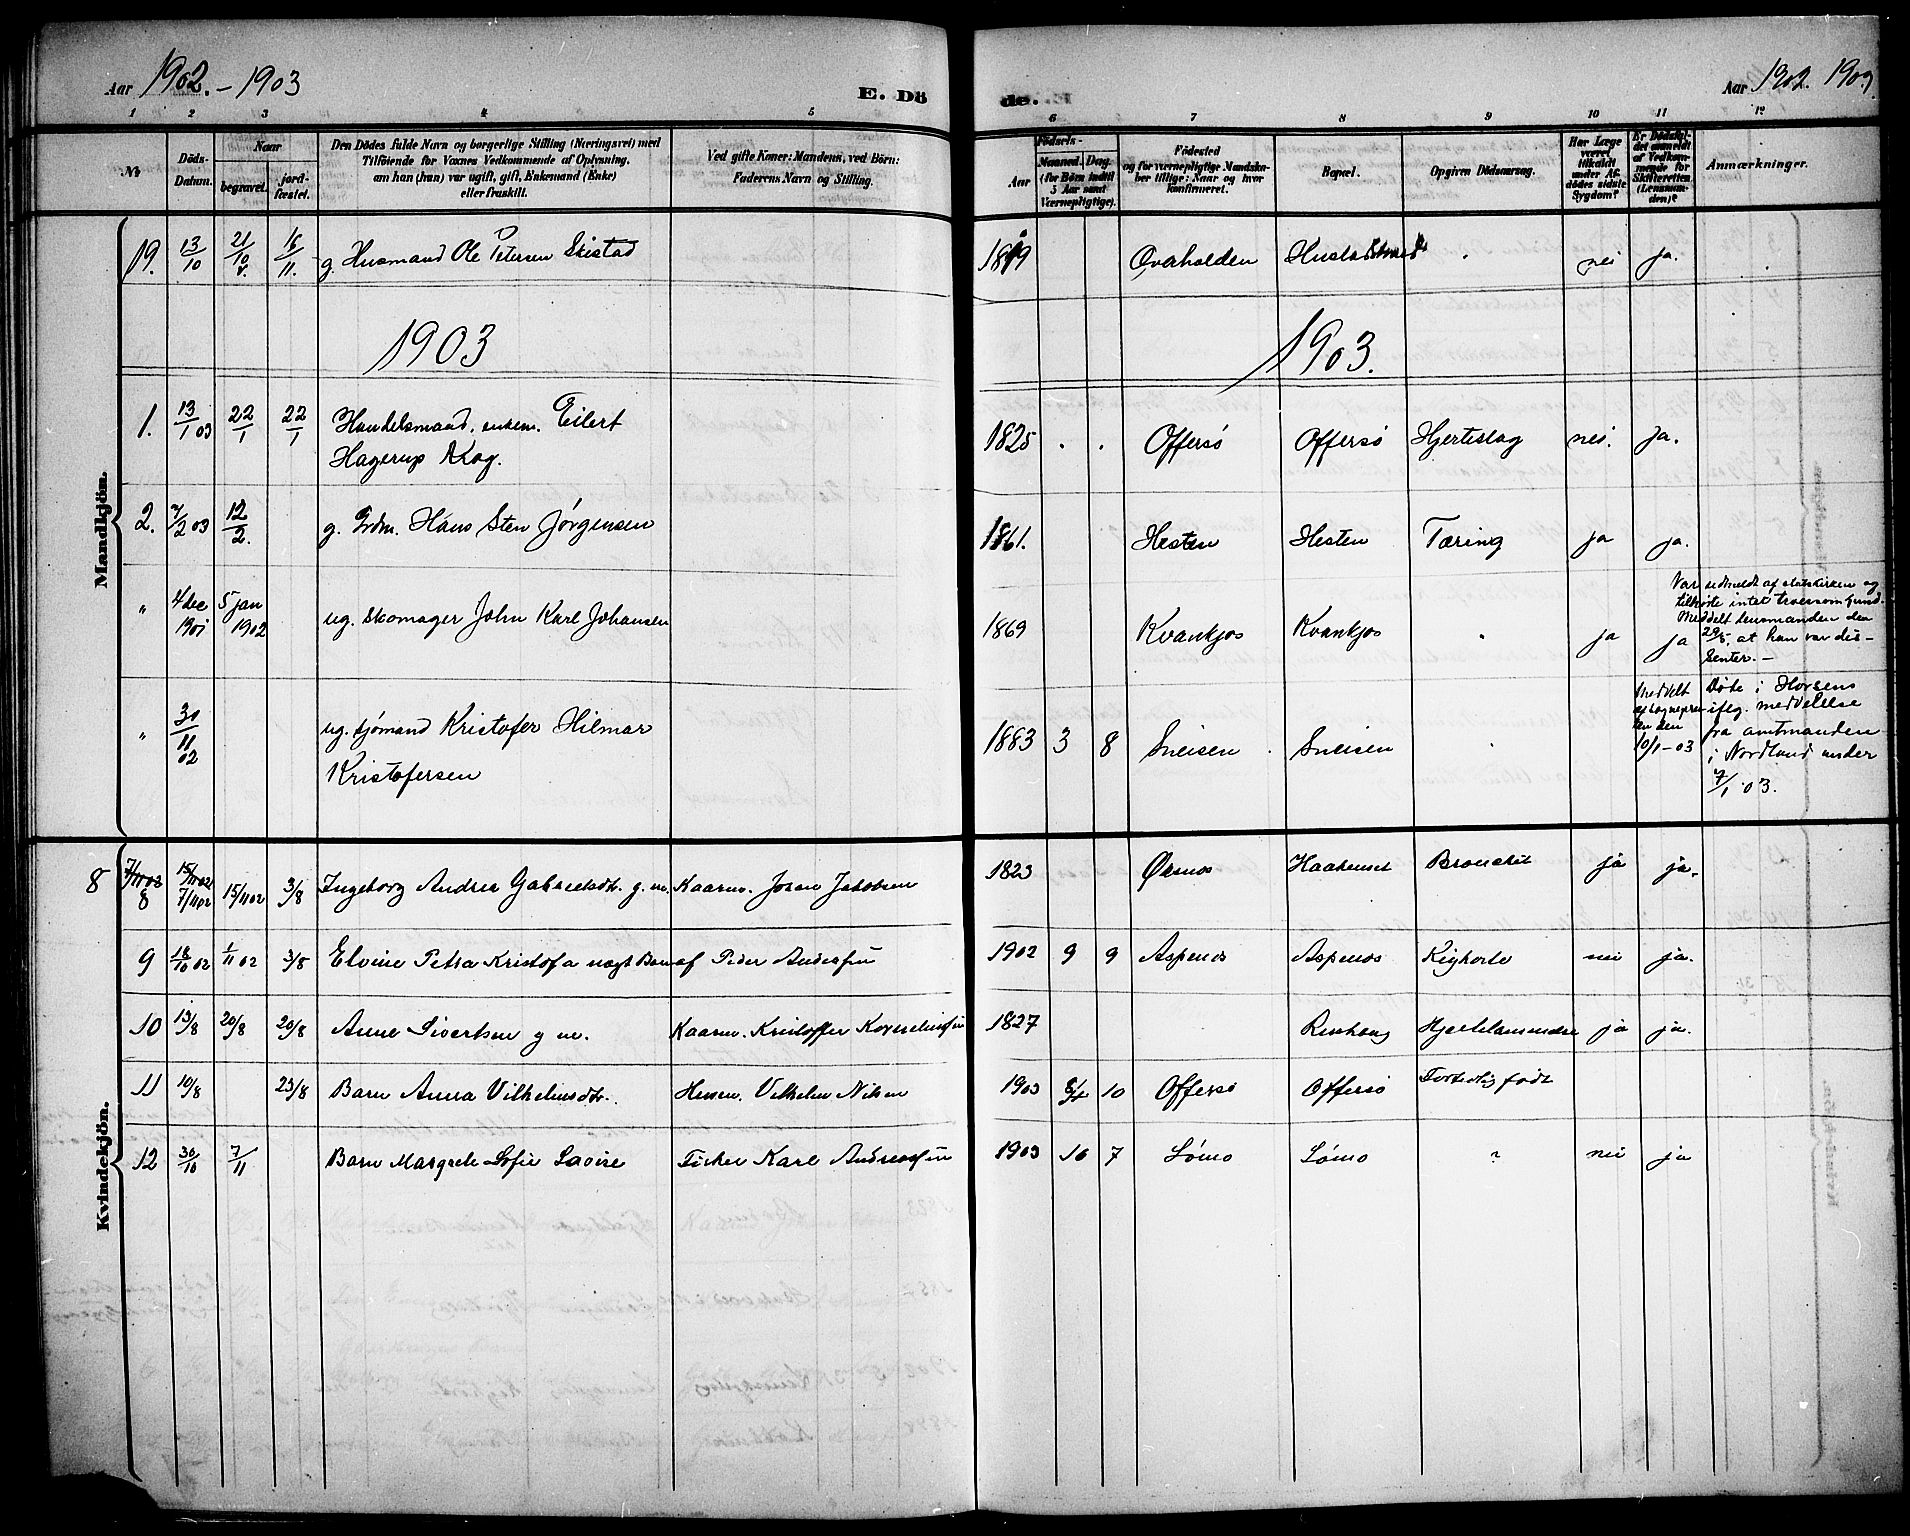 Aar 1902.-1903
E. Dö
de.
Aar 1902. 1903.
1 2 3 4 5 6 7 8 9 10 11 12
No
Döds-Datum.
Naar
begravet.
jord-fæstet.
Den Dödes fulde Navn og borgerlige Stilling (Næringsvei) med
Tilföiende for Voxnes Vedkommende af Oplysning,
om han (hun) var ugift, gift, Enkemand (Enke)
eller fraskilt.
Ved gifte Koner: Mandens, ved Börn:
Faderens Navn og Stilling.
Födsels-
Aar
Maaned. Dag.
(for Börn indtil
5 Aar samt
Værnepligtige).
Födested
og for værnepligtige Mandska-
ber tillige: Naar og hvor
konfirmeret.
Bopæl.
Opgiven Dödsaarsag.
Har Læge
været
tilkaldt
under Af-
dödes sidste
Sygdom?
Er Dödsfal-
det anmeldt
af Vedkom-
mende for
Skifteretten
(Lensman-
den)?
Anmærkninger.
Mandkjön.
19. 13/10 21/10 16/11. g. Husmand Ole Petersen Skistad Overhalden nei ja.
1903 1903.
1. 13/1 03 22/1 22/1 Handelsmand, enkem. Eilert
Hagerup Kog. 1825 . . Offersö Offersö Hjerteslag nei. ja.
2. 7/2 03 12/2. g. Grdm. Hans Sten Jørgensen 1861. Hesten Hesten Tæring ja ja.
" 4 dec 1901 5 jan 1902 ug. Skomager John Karl Johansen 1869 Kvankjos Kvankjos " ja ja
Var udmeldt af statskirken og
tilhørte intet troessamfund.
Meddelt lensmanden den
29/5, at han var dis-
senter. —
" 31/11 02 ug. sjømand Kristofer Hilmar
Kristofersen 1883 3 8 Sneisen Sneisen "
Meddelt
af sogneprè-
sten den
10/1-03
Døde i Horsens
iflg. meddelelse
fra amtmanden
i Nordland under
7/1 03.
Kvindekjön.
8 7/11 02 8 15/11 02 7/11 02 15/11 02 3/8 Ingeborg Andrea Gabrielsdtr. g. m. Kaarm. Johan Jakobsen 1823 Øksnes Bronchit ja ja.
9 18/10 02 1/11 02 3/8 Elvine Petra Kristofa uægt Barn af Peder Andersen 1902 9 9 Aspenes Aspenes Kighoste nei ja.
10 13/8 20/8 20/8 Anne Sivertsen g m. Kaarm. Kristoffer Korneliussen 1827 Renhaug Hjertelammelse ja ja.
11 10/8 23/8 Barn Anna Vilhelmsdtr. Husm. Vilhelm Nilsen 1903 10 Offersö Offersö Fortidlig født
12 30/10 7/11 Barn Margrete Sofie Lovise Fisker Karl Andreassen 1903 10 7 Lømo Lømo ? nei ja